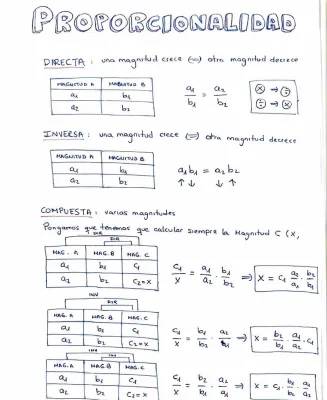 PROPORCIONALIDAD
DIRECTA : una magnitud crece ⟺ otra magnitud decrece
MAGNITUD A MAGNITUD B
a₁ b₁
a₂ b₂
a₁/b₁ = a₂/b₂
⊗ → ⊕
⊕ → ⊗
INVERSA : una magnitud crece ⟺ otra magnitud decrece
MAGNITUD A MAGNITUD B
a₁ b₁
a₂ b₂
a₁b₁ = a₂b₂
↑ ↓ ↓ ↑
COMPUESTA : varias magnitudes
Pongamos que tenemos que calcular siempre la Magnitud C (X,
DIR
DIR
MAG. A MAG. B MAG. C
a₁ b₁ C₁
a₂ b₂ C₂=X
C₁/X = a₁/a₂ · b₁/b₂ ⇒ X = C₁ a₂/a₁ · b₂/b₁
INV
DIR
MAG. A MAG. B MAG. C
a₁ b₁ C₁
a₂ b₂ C₂=X
C₁/X = b₁/b₂ · a₂/a₁ ⇒ X = b₂/b₁ · a₁/a₂ · C₁
INV
INV
MAG. A MAG. B MAG. C
a₁ b₁ C₁
a₂ b₂ C₂=X
C₁/X = b₂/b₁ · a₂/a₁ ⇒ X = C₁ · b₁/b₂ · a₁/a₂